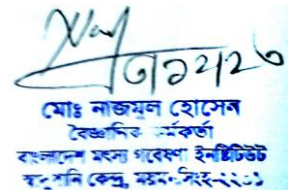 মোঃ নাজমুল হোসেন
বৈজ্ঞানিক কর্মকর্তা
বাংলাদেশ মৎস্য গবেষণা ইনষ্টিটিউট
কেন্দ্র, ময়মনসিংহ-২২০১